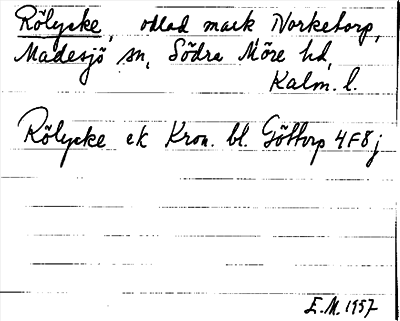 Rölycke, odlad mark, Norketorp,
Madesjö sn, Södra Möre hd,
Kalm. l.
Rölycke ek Kron. bl. Göttorp 4F8j
E.M. 1957